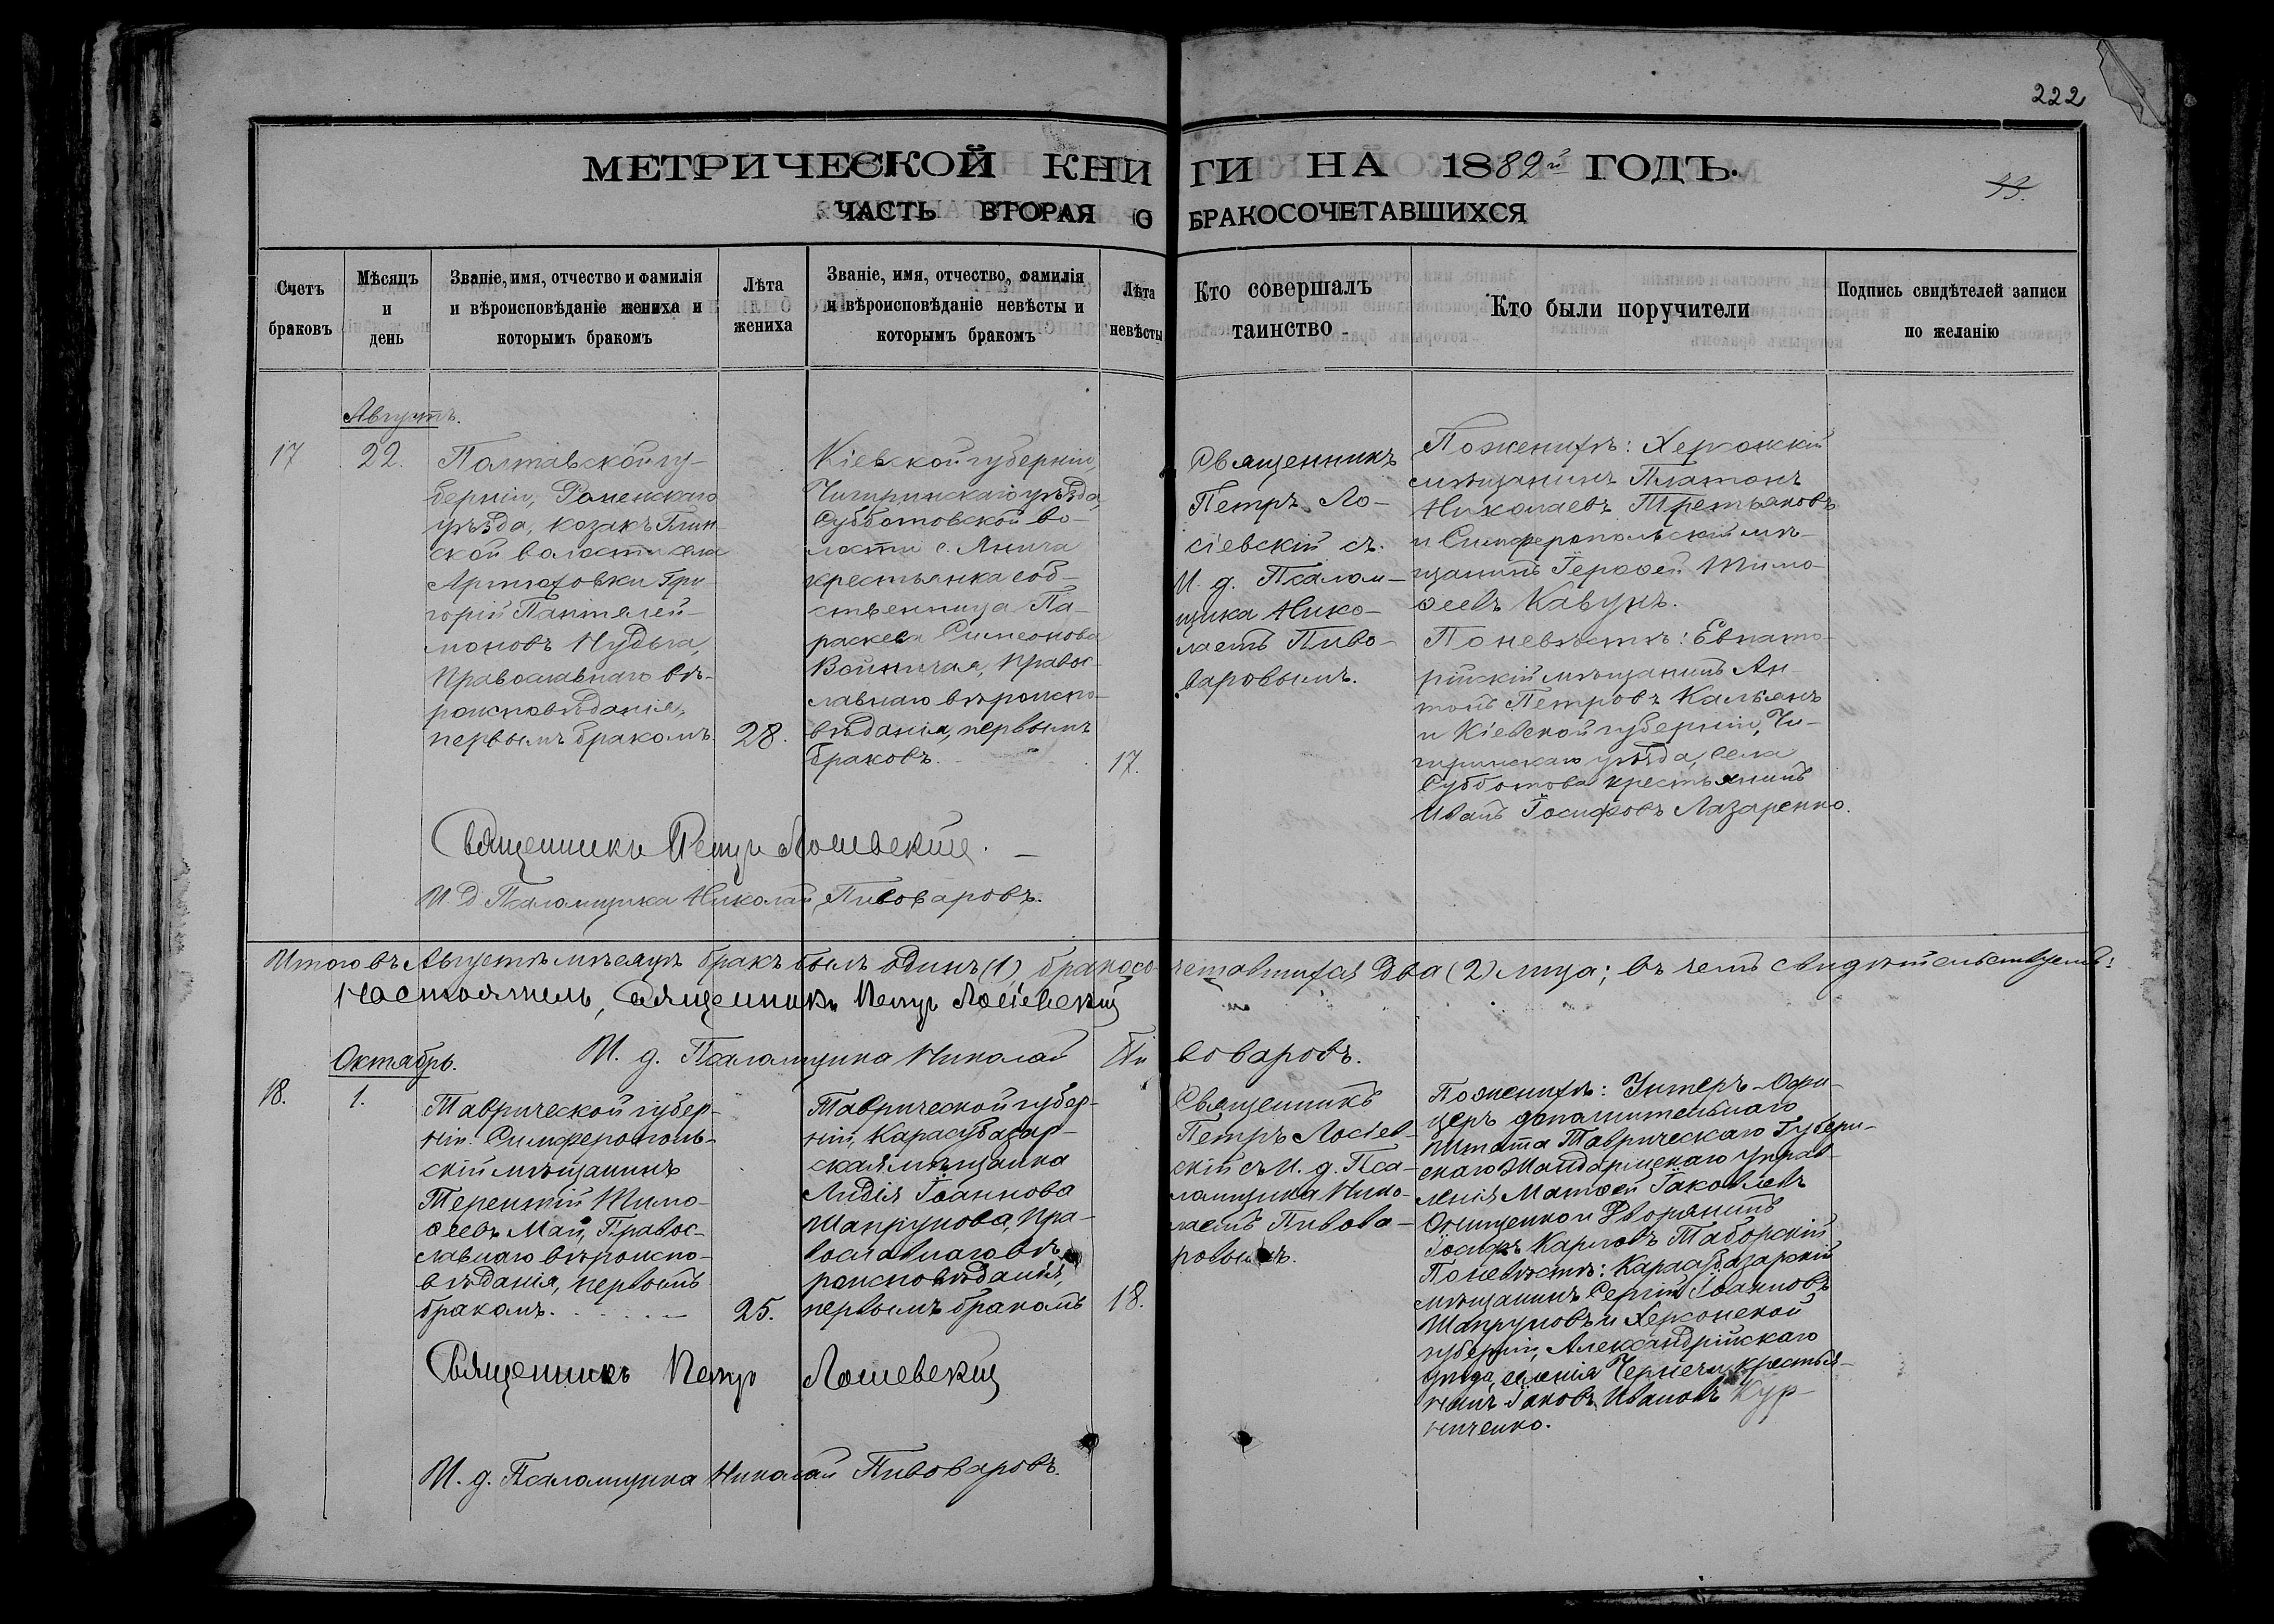 222
МЕТРИЧЕСКОЙ КНИГИ НА 1882й ГОДЪ.
33.
ЧАСТЬ ВТОРАЯ О БРАКОСОЧЕТАВШИХСЯ
Счетъ
браковъ
Мѣсяцъ
и
день
Званіе, имя, отчество и фамилія
и вѣроисповѣданіе жениха и
которымъ бракомъ
Лѣта
жениха
Званіе, имя, отчество, фамилія
и вѣроисповѣданіе невѣсты и
которымъ бракомъ
Лѣта
невѣсты
Кто совершалъ
таинство
Кто были поручители
Подпись свидѣтелей записи
по желанію
Августъ.
17
22.
Полтавской гу-
берніи, Роменскаго
уѣзда, козакъ Глин
ской волости села
Артюховки Гри
горій Пантелей-
моновъ Нудьга,
Православнаго вѣ-
роисповѣданія,
первымъ бракомъ.
28.
Кіевской губерніи,
Чигиринскаго уѣзда,
Субботовской во-
лости с. Янича
крестьянка соб-
ственница Па-
раскева Симеонова
Войничая, правос-
лавнаго вѣроиспо-
вѣданія, первымъ
браковъ.
17.
Священникъ
Петръ Ло-
сіевскій съ
И. д. Псалом-
щика Нико-
лаемъ Пиво-
варовымъ.
По женихѣ: Херсонскій
мѣщанинъ Платонъ
Николаевъ Третьяковъ
и Симферопольскій мѣ-
щанинъ Іерофей Тимо-
феевъ Кавунъ.
По невѣстѣ: Евпато-
рійскій мѣщанинъ Ан-
тонъ Петровъ Кальянъ
и Кіевской губерніи, Чи-
гиринскаго уѣзда, села
Субботова крестьянинъ
Иванъ Іосифовъ Лазаренко.
Священникъ Петръ Лосіевскій.
И. д. Псаломщика Николай Пивоваровъ.
Итого въ Августѣ мѣсяцѣ бракъ былъ одинъ (1), бракосочетавшихся два (2) лица; въ чемъ свидѣтельствуемъ:
Настоятель, Священникъ Петръ Лосіевскій
И. д. Псаломщика Николай Пивоваровъ.
Октябрь.
18.
1.
Таврической губер-
ніи Симферополь-
скій мѣщанинъ
Терентій Тимо-
феевъ Май, Правос-
лавнаго вѣроиспо-
вѣданія, первымъ
бракомъ.
25.
Таврической губер-
ніи, Карасубазар-
ская мѣщанка
Лидія Іоаннова
Шапрунова, пра-
вославнаго вѣ-
роисповѣданія,
первымъ бракомъ
18.
Священникъ
Петръ Лосіев-
скій съ И. д. Пса-
ломщика Нико-
лаемъ Пивова-
ровымъ.
По женихѣ: Унтеръ-Офи-
церъ дополнительнаго
Штата Таврическаго Губерн-
скаго Жандармскаго Управ-
ленія Матфей Іаковлевъ
Онищенко и Дворянинъ
Іосифъ Карловъ Таборскій
По невѣстѣ: Карасубазарскій
мѣщанинъ Сергій Іоанновъ
Шапруновъ и Херсонской
губерніи, Александрійскаго
уѣзда, селенія Чернечи крестья-
нинъ Іаковъ Ивановъ Кур-
ниченко.
Священникъ Петръ Лосіевскій
И. д. Псаломщика Николай Пивоваровъ.